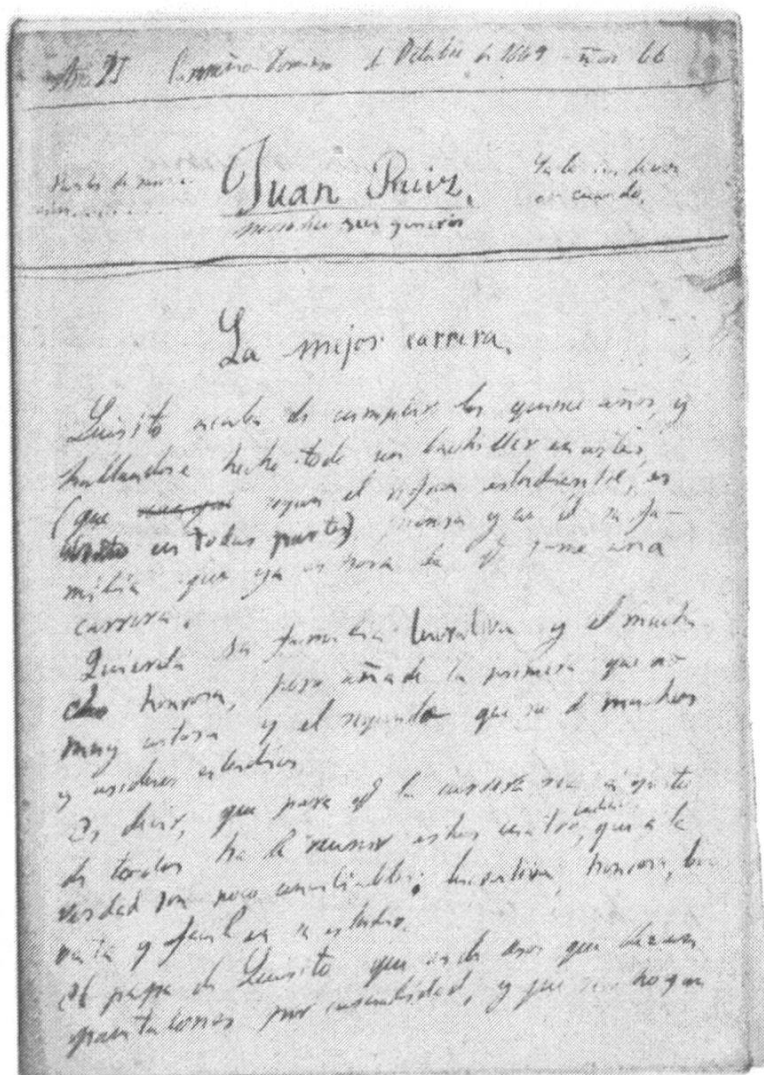 Año II Primera de Octubre de 1869 Núm 66
Juan Ruiz.
Ya lo
sui generis
La mejor carrera.
Luisito acaba de cumplir los quince años, y
hallandose hecho todo un bachiller en artes,
(que segun el es
en todas partes) piensa y con él su fa-
milia que ya es hora de q tome una
carrera.
Quierela su familia lucrativa y el mucha-
cho honrosa, pero añade la primera que no
muy costosa y el segundo que no d muchos
y estudios
Es decir, que para q la carrera sea á gusto
de todos ha de reunir estas cuatro que a la
verdad son poco conciliables: lucrativa, honrosa, ba-
rata y facil en su estudio.
El papa de Luisito que es de esos que llevan
pantalones por casualidad, y que no hagan